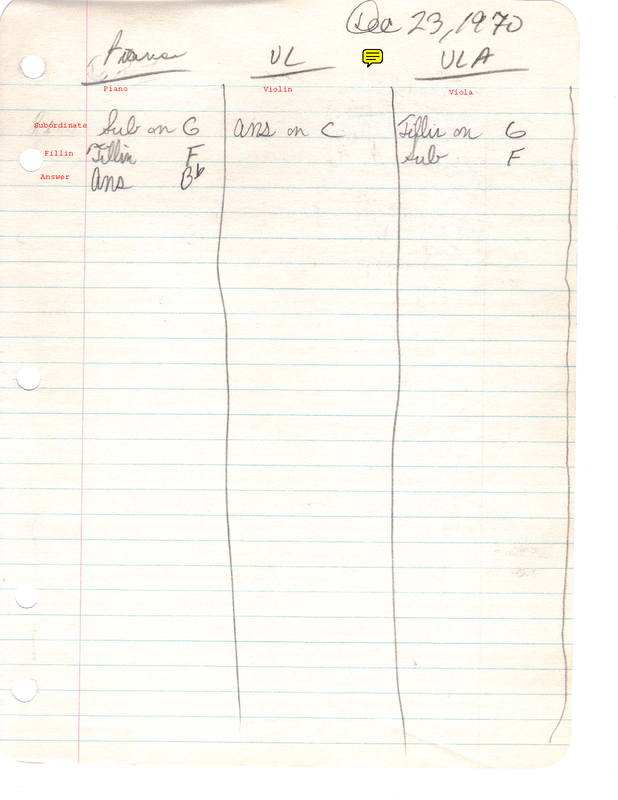 Dec 23, 1970
Piano VL VLA
Piano Violin Viola
Subordinate Sub on G Ans on C Fillin on G
Fillin Fillin F Sub F
Answer Ans Bb